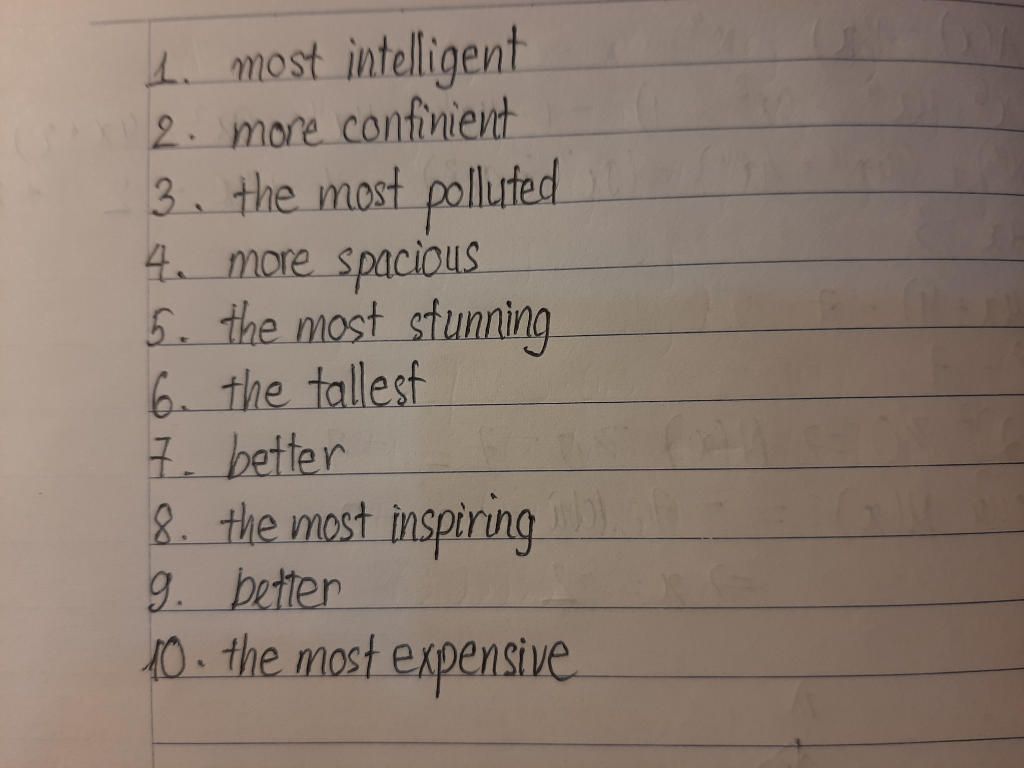 1. most intelligent
2. more confinient
3. the most polluted
4. more spacious
5. the most stunning
6. the tallest
7. better
8. the most inspiring
9. better
10. the most expensive